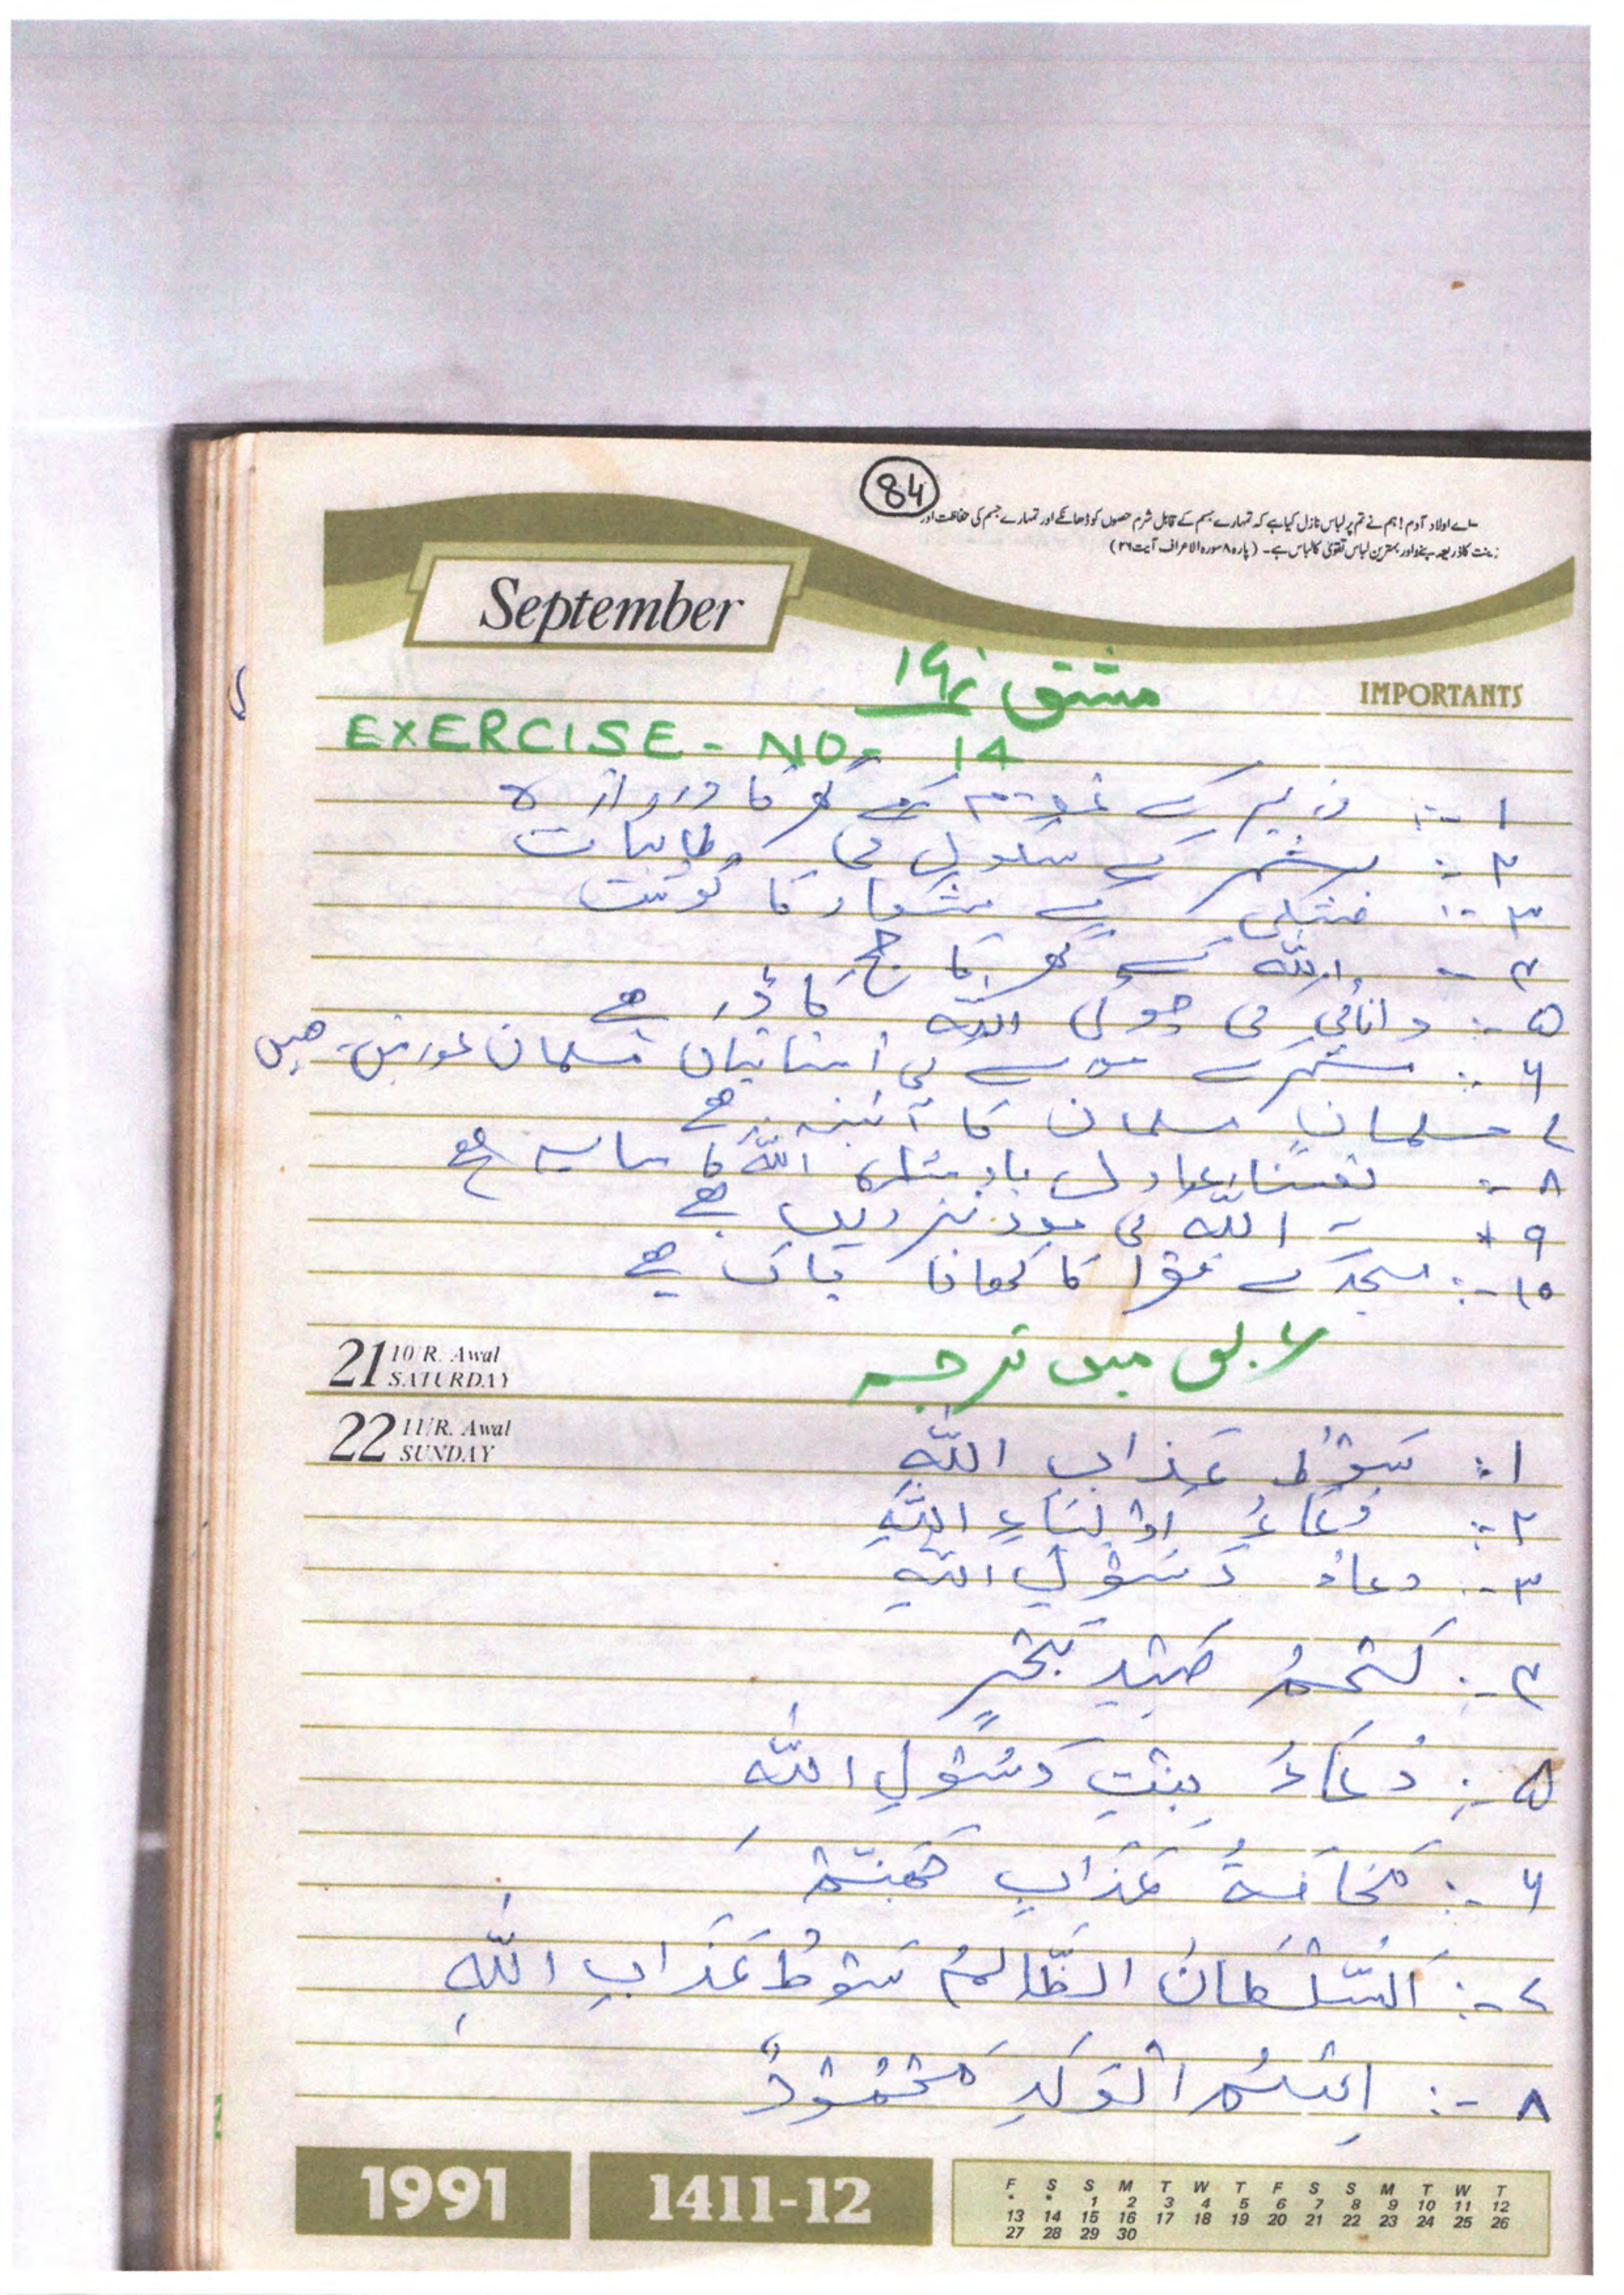 84
اے اولاد آدم! ہم نے تم پر لباس نازل کیا ہے کہ تمہارے جسم کے قابل شرم حصوں کو ڈھانکے اور تمہارے جسم کی حفاظت اور
زینت کا ذریعہ ہو اور بہترین لباس تقویٰ کا لباس ہے۔ (پارہ ۸ سورہ الاعراف آیت ۲۶)
September
مشق نمبر ۱۴
IMPORTANTS
EXERCISE - NO - 14
۱ -: کے گھر کا دروازہ
۲ -: شہر کے سکول کی طالبات
۳ -: خشکی کے شکار کا گوشت
۴ - اللہ کے گھر کا حج
۵ -: دانائی کی چوٹی اللہ کا ڈر ہے
۶ -: کی استانیاں مسلمان عورتیں ہیں
۷ مسلمان مسلمان کا آئینہ ہے
۸ -: یقیناً عادل بادشاہ اللہ کا سایہ ہے
۹ - اللہ کی مدد قریب ہے
۱۰ -: مسجد کے کا کھانا پاک ہے
21 10/R. Awal
SATURDAY
عربی میں ترجمہ
22 11/R. Awal
SUNDAY
۱ : سَوْطُ عَذَابِ اللّٰهِ
۲ -: دُعَاءُ اَوْلِيَاءِ اللّٰهِ
۳ -: دعاءُ رَسُوْلِ اللّٰهِ
۴ -: لَحْمُ صَيْدِ بَحْرٍ
۵ -: دُعَاءُ بِنْتِ رَسُوْلِ اللّٰهِ
۶ -: مَخَافَةُ عَذَابِ جَهَنَّمَ
۷ -: اَلسُّلْطَانُ الظَّالِمُ سَوْطُ عَذَابِ اللّٰهِ
۸ -: اِسْمُ الْوَلَدِ مَحْمُوْدٌ
1991
1411-12
F S S M T W T F S S M T W T
* * 1 2 3 4 5 6 7 8 9 10 11 12
13 14 15 16 17 18 19 20 21 22 23 24 25 26
27 28 29 30